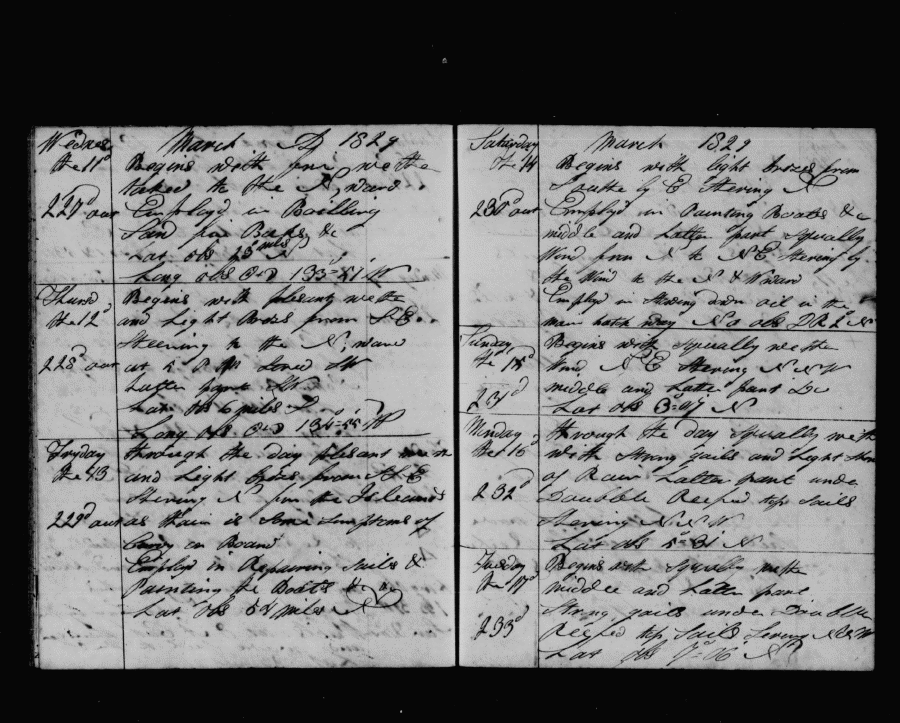 March 1829
Wednes
the 11d
227d out
Begins with fine wethe
taked to the N, ward
Employd in Boilling
for Boats &c
Lat obs 18 miles N
Long obs 133=51 W
Thursd
the 12d
228d out
Begins with plesant wethe
and Light Breses from S E
Steering to the N, ward
at 5 P M
Latter part
Lat obs 6 miles
Long obs 134=55 W
Fryday
the 13
229d out
through the day plesant wethe
and Light Breses from S E
Stering N for the Isleands
as thair is Some Simptoms of
on Board
Employd in Repairing Sails &
Painting the Boats &c
Lat obs 54 miles N
March 1829
Saturday
the 14
230d out
Begins with light brezes from
Southe by E Stering N
Employd in Painting Boats &c
middle and Latter part Squally
Wind from N to N E Stering by
the Wind to the N & Wward
Employd in Stowing down oil in the
main hatch way No obs DR 2 N
Sunday
the 15d
231d
Begins with Squally wethe
Wind N E Stering N N W
middle and Latter part Do
Lat obs 3=07 N
Munday
the 16d
232d
through the day Squally weth
with Strong gails and Light
of Rain Latter part unde
Doubble Reefed top Sails
Stering N N W
Lat obs 5=31 N
Tuesday
the 17d
233d
Begins with Squally wethe
middle and Latter part
Strong gails under Doubble
Reefed top Sails Stering N N W
Lat obs 7=06 N